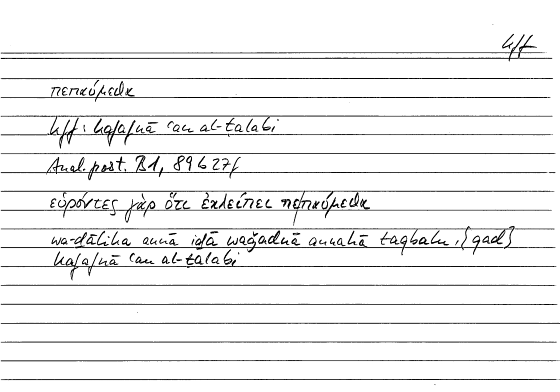 kff
πεπαύμεθα
kff: kafafnā ʿan al-ṭalabi
Anal. post. B1, 89 b 27f
εὑρόντες γὰρ ὅτι ἐκλείπει πεπαύμεθα
wa-ḏālika annā iḏā waǧadnā annahā
kafafnā ʿan al-ṭalabi